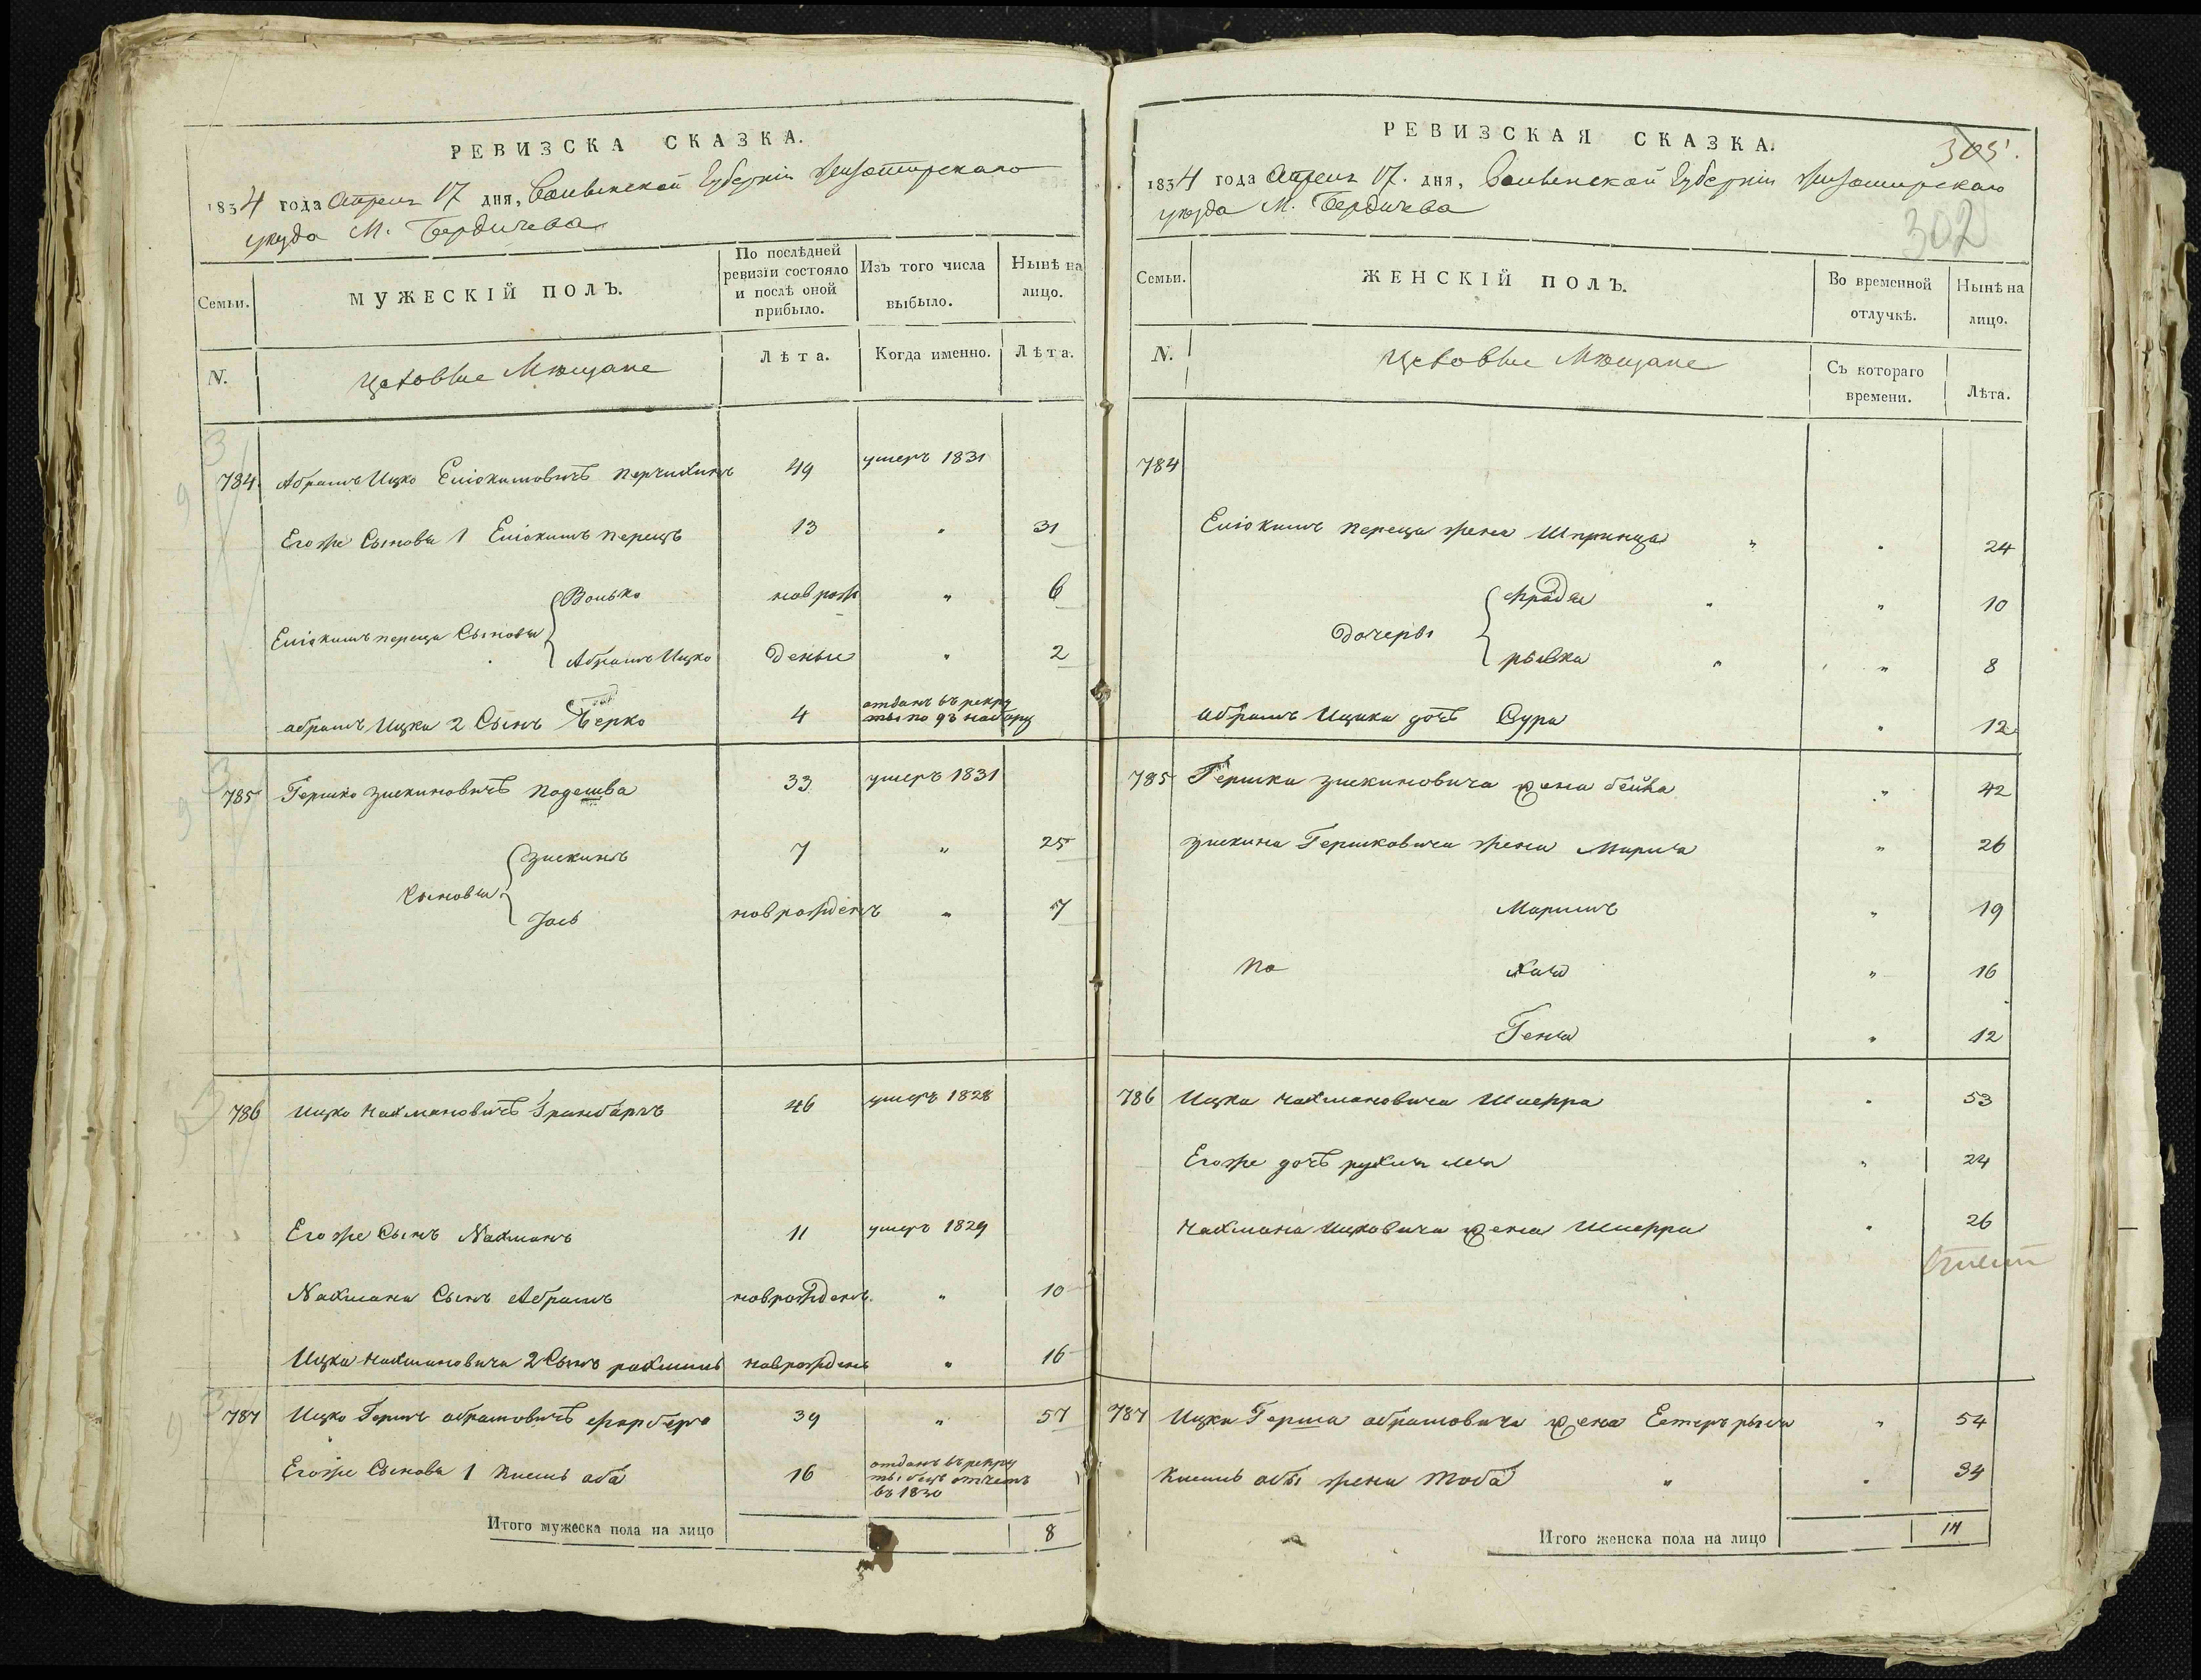 РЕВИЗСКА СКАЗКА.
1834 года Апреля 17 дня, Волынской Губерніи Житомирскаго
уезда М. Бердичева
Семьи.
МУЖЕСКІЙ ПОЛЪ.
По послѣдней ревизіи состояло и послѣ оной прибыло.
Изъ того числа выбыло.
Нынѣ на лицо.
N.
Цеховые Мѣщане
Лѣта.
Когда именно.
Лѣта.
784. Абрамъ Ицко Еліокимовичъ 49 умеръ 1831
Егоже Сыновья 1 Еліокимъ перецъ 13 " 31
Волько новрож " 6
Еліокимъ переца Сыновья
Абрамъ Ицко деные " 2
абрамъ Ицка 2 Сынъ Берко 4 отданъ въ рекру
ты по 93 набору
785 Гершко зискиновичъ подешва 33 умеръ 1831
зискинъ 7 " 25
Сыновья
Іось новрожденъ " 7
786 Ицко Нахмановичъ 46 умеръ 1828
Егоже Сынъ Нахманъ 11 умеръ 1829
Нахмана Сынъ Абрамъ новрожденъ " 10
Ицка Нахмановича 2 Сынъ рахмиль новрожденъ " 16
787 Ицко Гершъ абрамовичъ 39 " 57
Егоже Сыновья 1 аба 16 отданъ въ рекру
ты
въ 1830
Итого мужеска пола на лицо 8
РЕВИЗСКАЯ СКАЗКА.
305.
1834 года Апреля 17. дня, Волынской Губерніи Житомирскаго
уезда М. Бердичева
302
Семьи.
ЖЕНСКІЙ ПОЛЪ.
Во временной отлучкѣ.
Нынѣ на лицо.
N.
Цеховые Мѣщане
Съ котораго времени.
Лѣта.
784
Еліокимъ переца жена Шпринца " " 24
Фрадя " " 10
дочеры
рывка " " 8
абрамъ Ицика дочь Сура " 12
785 Гершка зискиновича жена бейла " 42
зискина Гершковича жена Мирля " 26
Маримъ " 19
Хая " 16
Геня " 12
786 Ицка Нахмановича Шифра " 53
Егоже дочь рухля лея " 24
Нахмана Ицковича жена Шифра " 26
787 Ицка Герша абрамовича жена Естеръ рыся " 54
абы жена Тоба " " 34
Итого женска пола на лицо 14